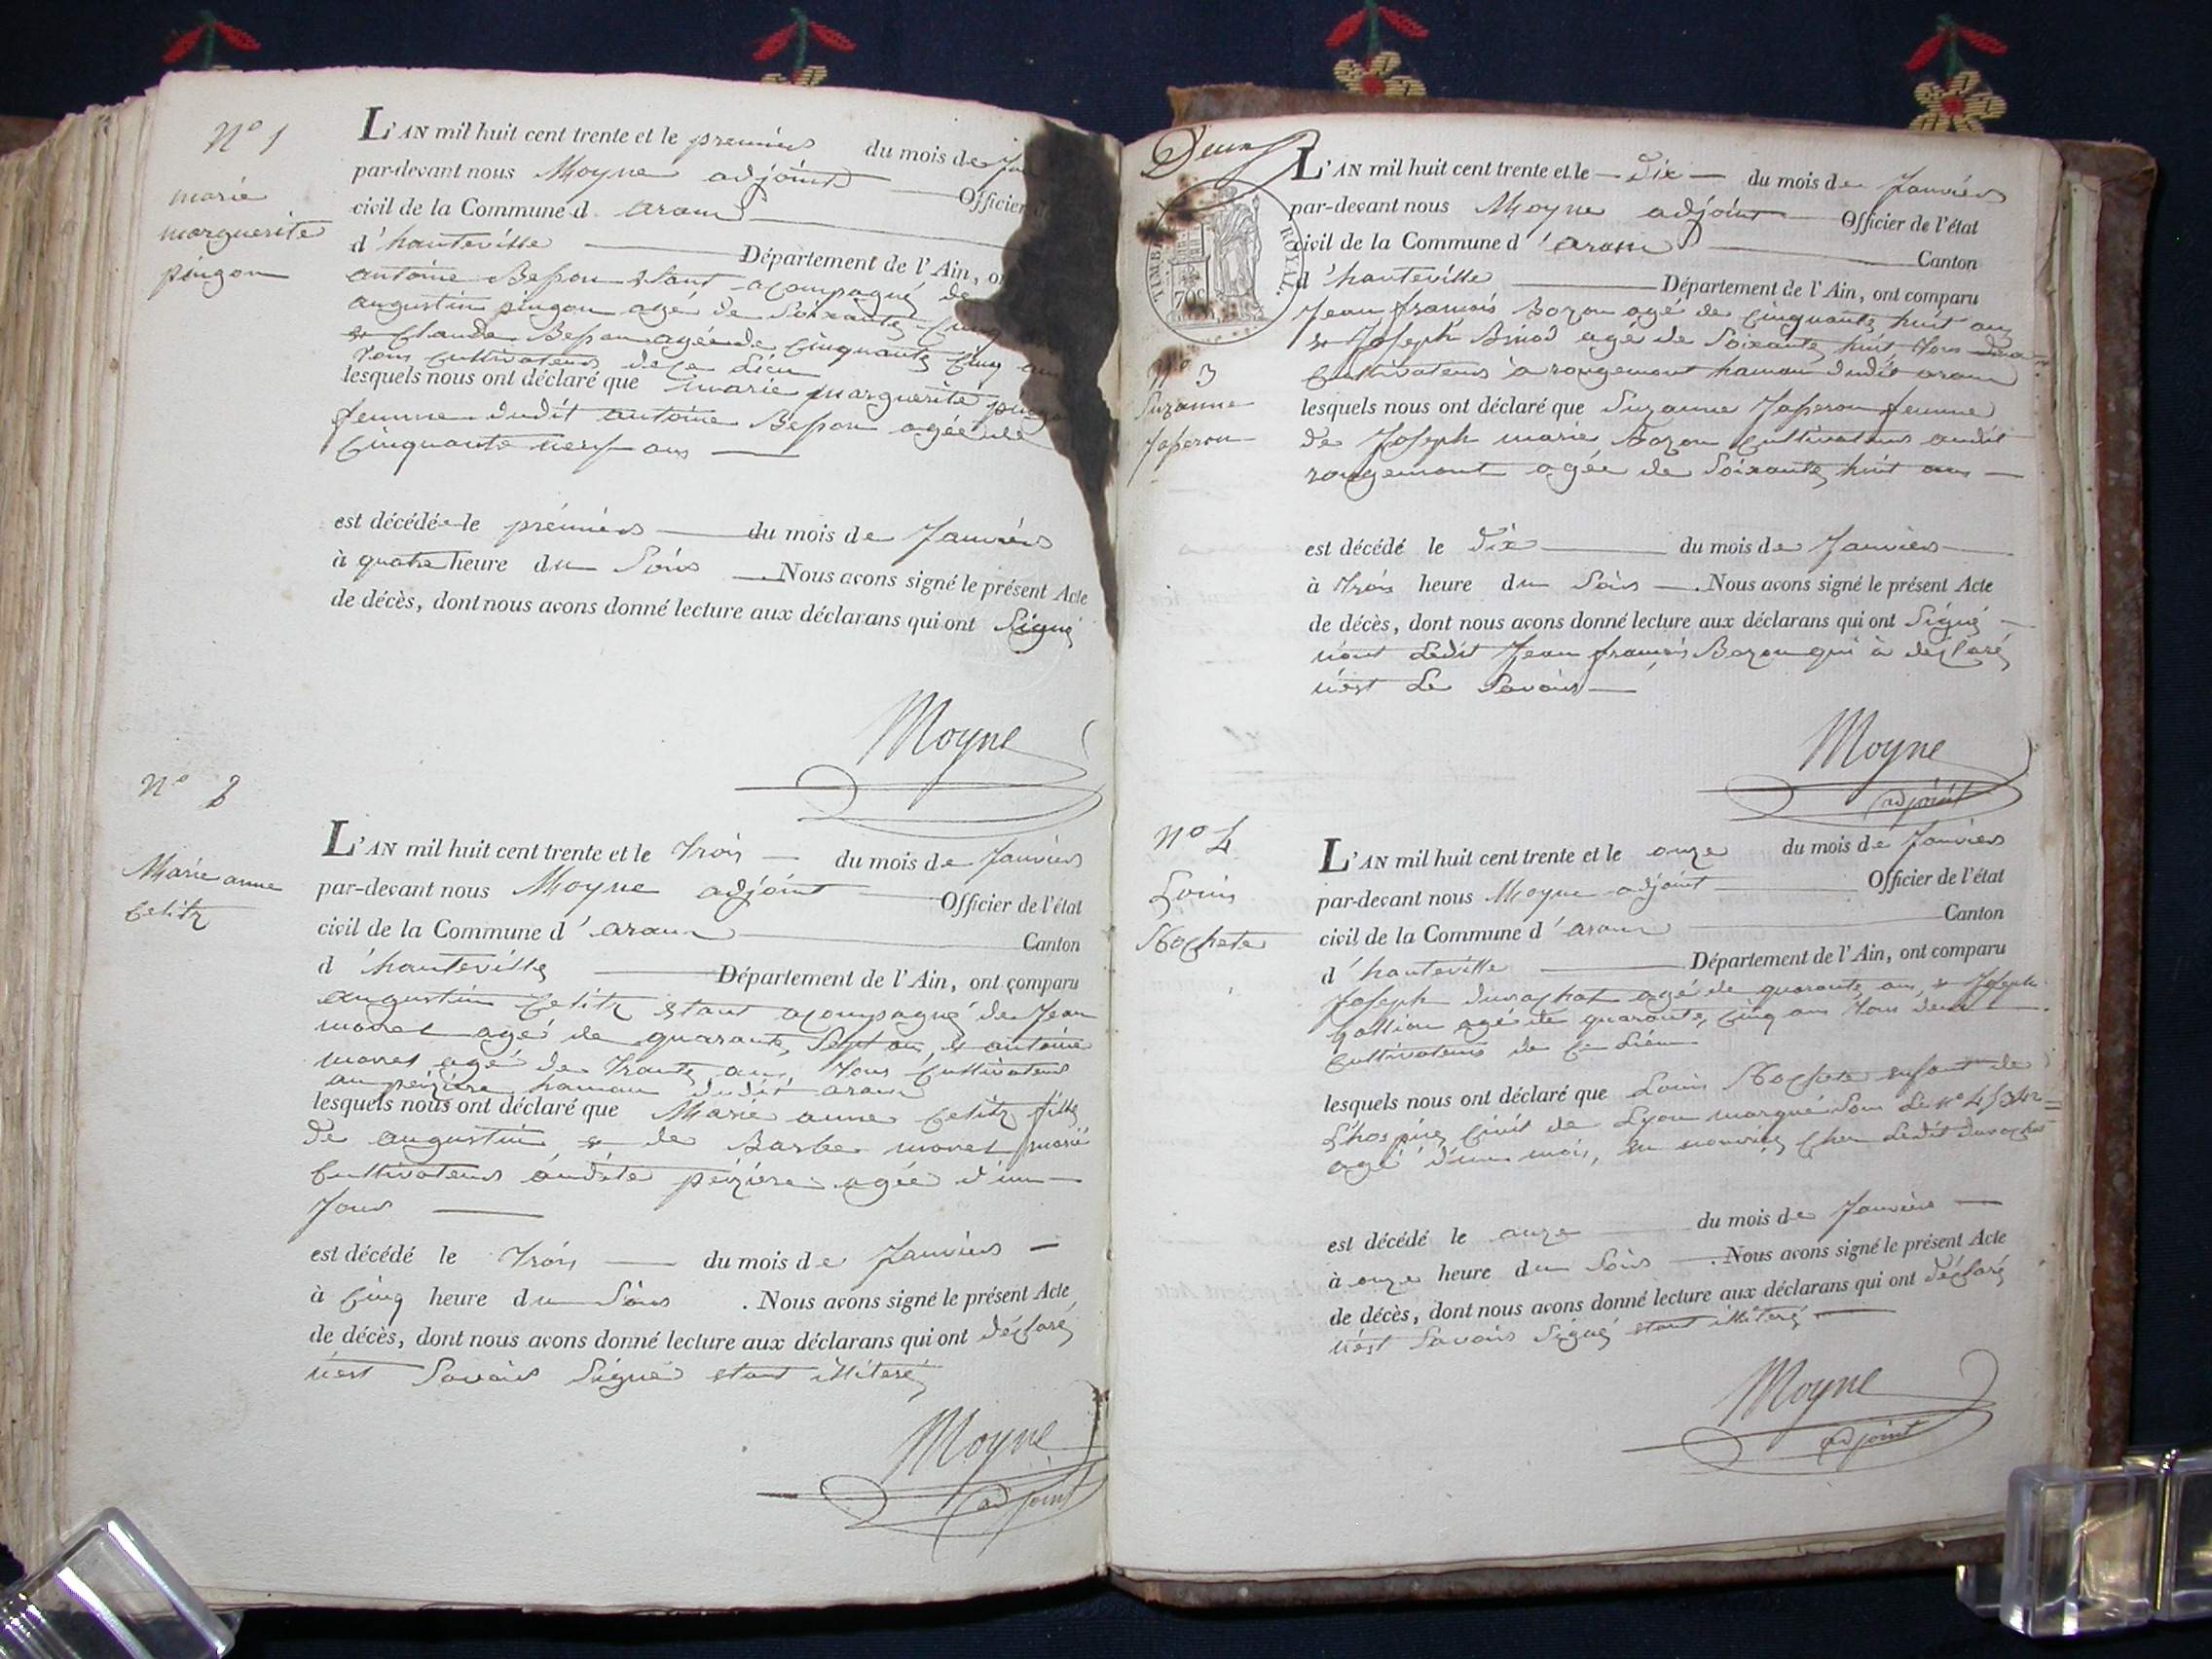 N° 1
marie
marguerite
pingon
L'AN mil huit cent trente et le premiers du mois de
par-devant nous Moyne adjoint Officier
civil de la Commune d aranc
d'hauteville Département de l'Ain,
antoine Besson Etant acompagné de
augustin pingon agé de Soixante Cinq
& Claude Besson agée de Cinquante Cinq
tous Cultivateurs de ce Lieu
lesquels nous ont déclaré que marie marguerite
femme dudit antoine Besson agée de
Cinquante neuf ans
est décédée le prémiers du mois de Janviers
à quatre heure du Soirs Nous avons signé le présent Acte
de décès, dont nous avons donné lecture aux déclarans qui ont Signé
Moyne
N° 2
Marie anne
Celitz
L'AN mil huit cent trente et le trois du mois de Janviers
par-devant nous Moyne adjoint Officier de l'état
civil de la Commune d'aranc Canton
d'hauteville Département de l'Ain, ont comparu
augustin Celitz Etant acompagné de Jean
monet agé de quarante Sept ans, & antoine
monet agé de trante ans, tous Cultivateurs
au péizière hamau dudit aranc
lesquels nous ont déclaré que Marie anne Celitz fille
de augustin & de Barbe monet marié
Cultivateurs audite péizière agée d'un
Jour
est décédé le trois du mois de Janviers
à Cinq heure du Soirs . Nous avons signé le présent Acte
de décès, dont nous avons donné lecture aux déclarans qui ont déclaré
n'est Savoirs Signé etant illiteré
Moyne
adjoint
Deux
TIMBRE ROYAL.
70c
N° 3
Suzanne
Japeron
L'AN mil huit cent trente et le Dix du mois de Janviers
par-devant nous Moyne adjoint Officier de l'état
civil de la Commune d'aranc Canton
d'hauteville Département de l'Ain, ont comparu
Jean françois Bozon agé de Cinquante huit ans
& Joseph Binod agé de Soixante huit, tous deux
Cultivateurs à rougemont hamau dudit aranc
lesquels nous ont déclaré que Suzanne Japeron femme
de Joseph marie Bozon Cultivateurs audit
rougemont agée de Soixante huit ans
est décédé le Dix du mois de Janviers
à trois heure du Soirs . Nous avons signé le présent Acte
de décès, dont nous avons donné lecture aux déclarans qui ont Signé
nont Ledit Jean françois Bozon qui à déclaré
n'est Le Savoirs
Moyne
adjoint
N° 4
Louis
Nochete
L'AN mil huit cent trente et le onze du mois de Janviers
par-devant nous Moyne adjoint Officier de l'état
civil de la Commune d'aranc Canton
d'hauteville Département de l'Ain, ont comparu
Joseph durochat agé de quarante ans, & Joseph
gallion agé de quarante, Cinq ans tous deux
Cultivateurs de Ce Lieu
lesquels nous ont déclaré que Louis Nochete enfant de
L'hospice Civil de Lyon marqué Sous Le n°
agé d'un mois, en nourice Chez Ledit durochat
est décédé le onze du mois de Janviers
à onze heure du Soirs . Nous avons signé le présent Acte
de décès, dont nous avons donné lecture aux déclarans qui ont déclaré
n'est Savoirs Signé etant illiteré
Moyne
adjoint